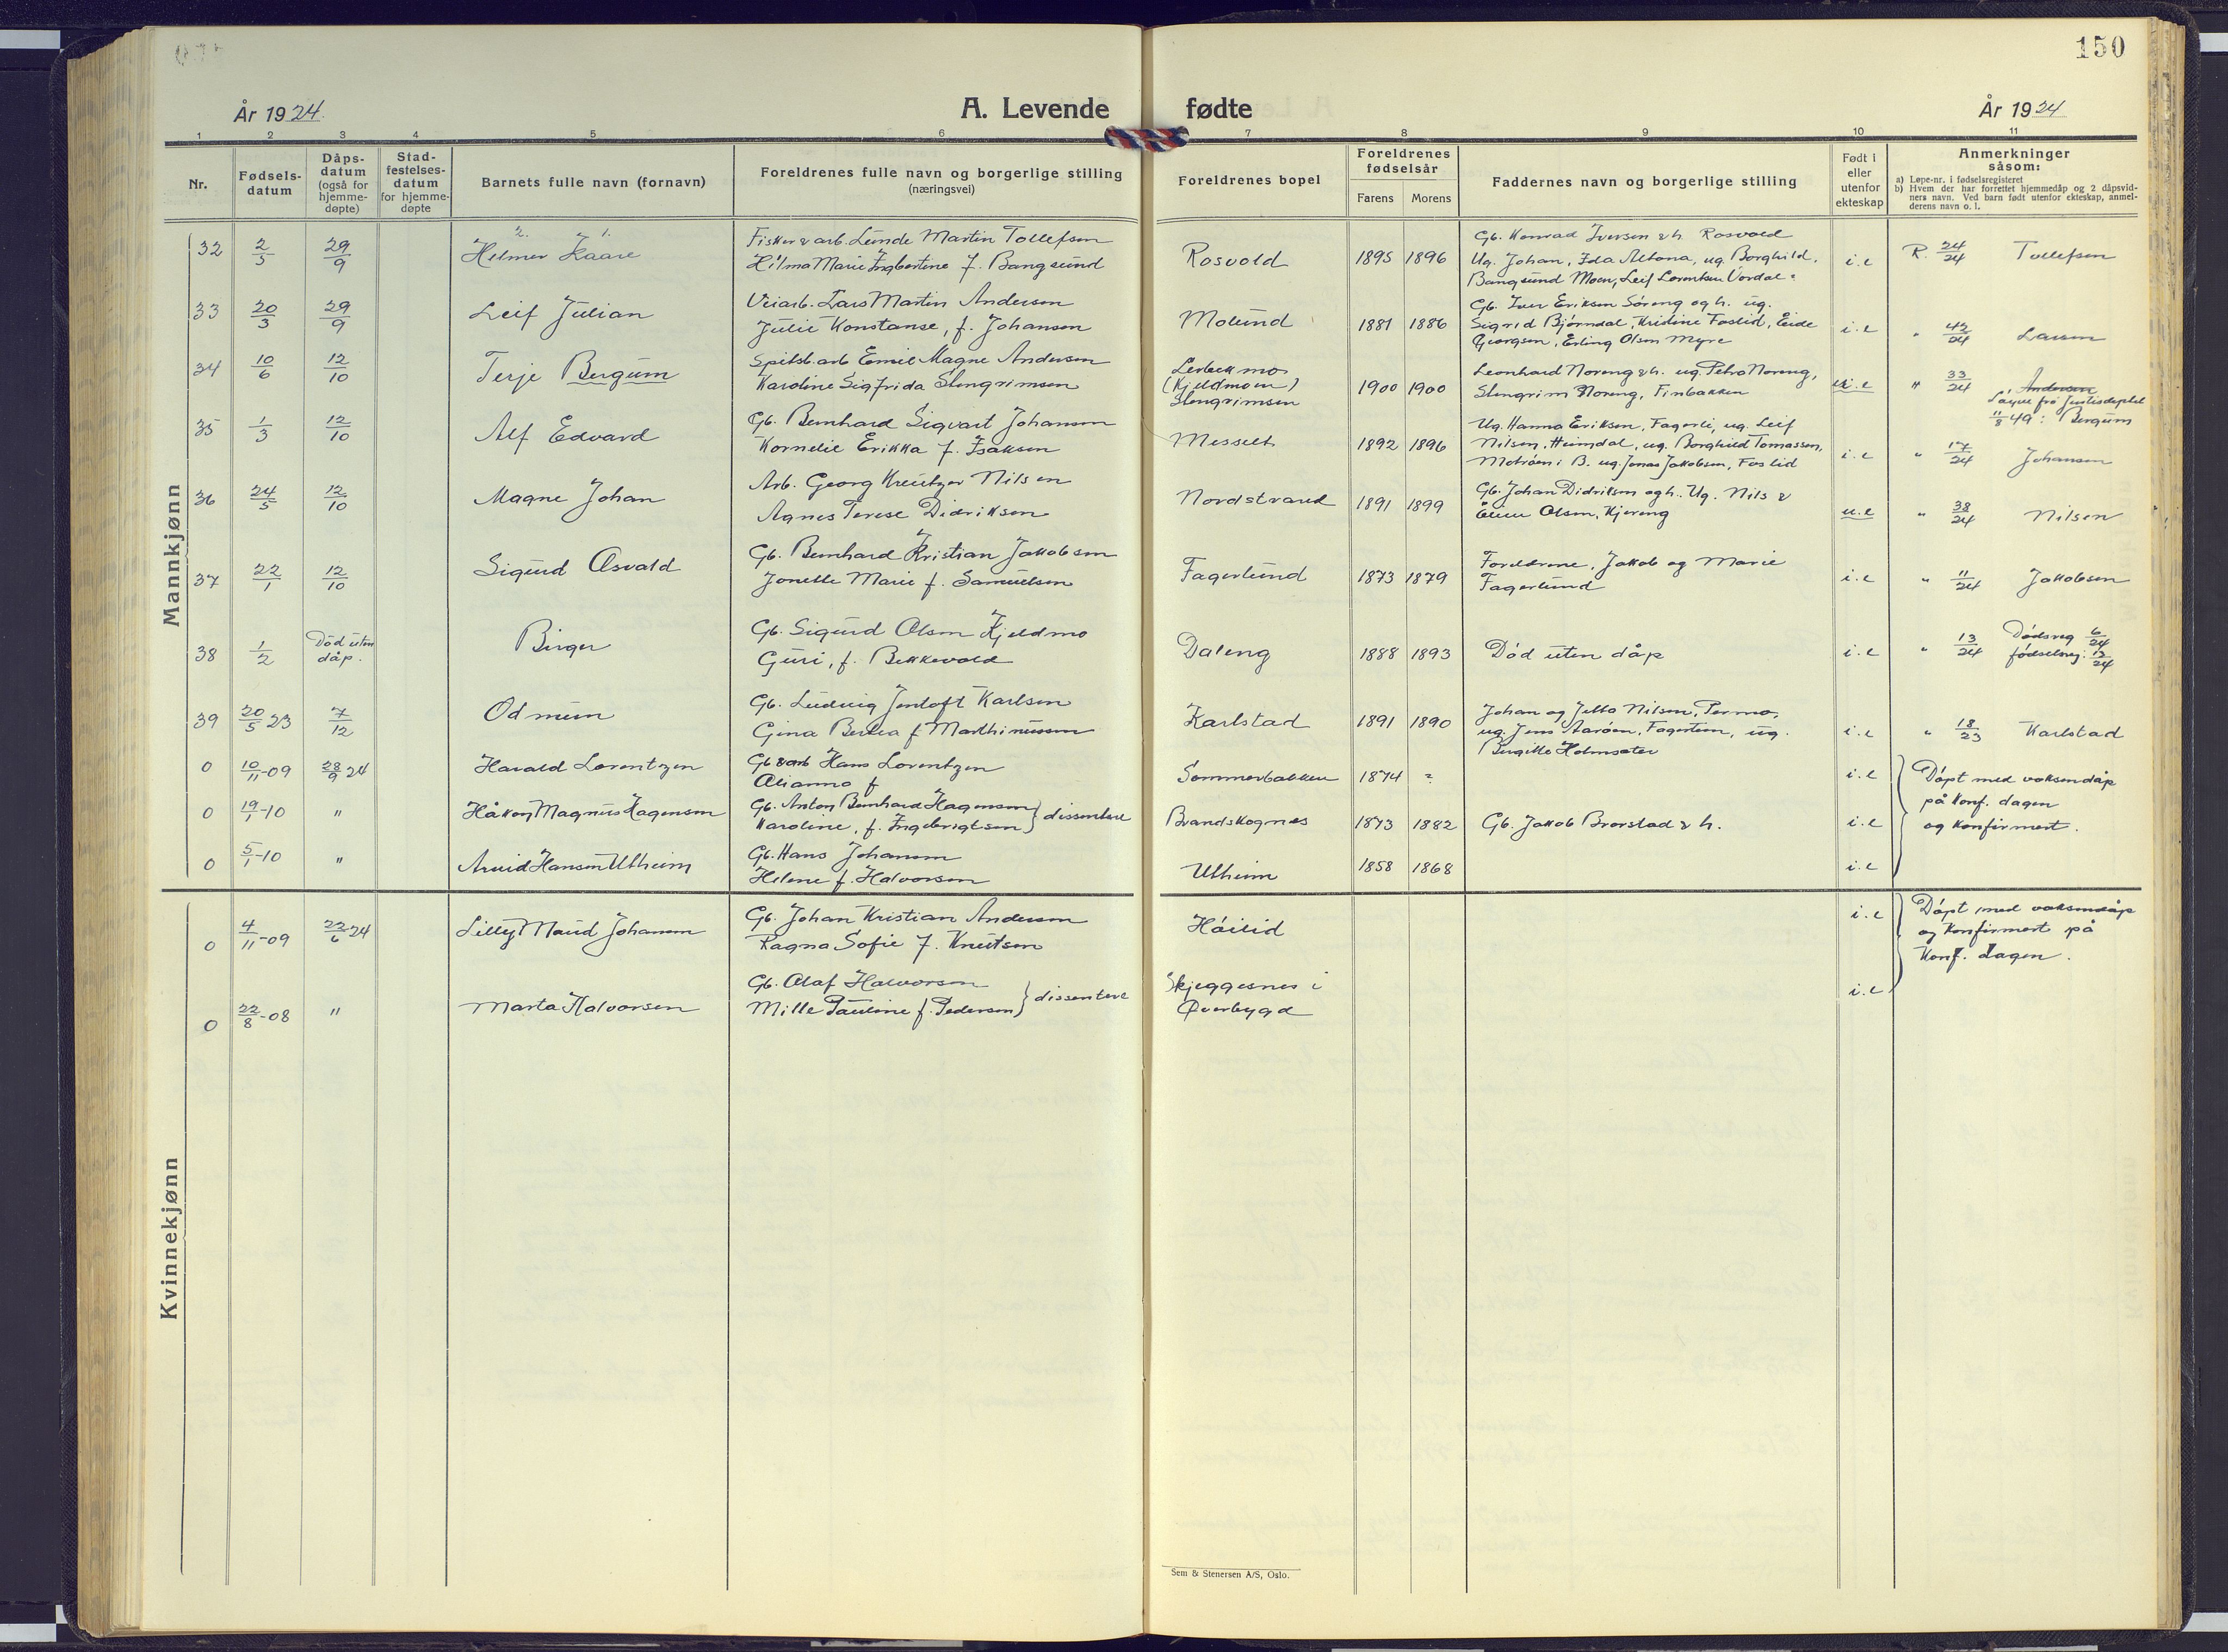 150
År 1924.
A. Levende fødte
År 1924
1 2 3 4 5 6 7 8 9 10 11
Nr.
Fødsels-
datum
Dåps-
datum
(også for
hjemme-
døpte)
Stad-
festelses-
datum
for hjemme-
døpte
Barnets fulle navn (fornavn)
Foreldrenes fulle navn og borgerlige stilling
(næringsvei)
Foreldrenes bopel
Foreldrenes
fødselsår
Farens Morens
Faddernes navn og borgerlige stilling
Født i
eller
utenfor
ekteskap
Anmerkninger
såsom:
a) Løpe-nr. i fødselsregisteret
b) Hvem der har forrettet hjemmedåp og 2 dåpsvid-
ners navn. Ved barn født utenfor ekteskap, anmel-
derens navn o. l.
Mannkjønn
32 2/5 29/9
2. 1.
Hilmer Kaare
Fisker & arb. Lunde Martin Tollefsen
Hilma Marie Ingbertine f. Bangsund
Rosvold 1895 1896
Gb. Konrad Iversen & h. Rosvold
Ug. Johan, Ida Altona, ug. Borghild,
Bangsund Moen, Leif Lorentsen
i.e R. 24/24 Tollefsen
33 20/3 29/9
Leif Julian
Veiarb. Lars Martin Andersen
Julie Konstanse, f. Johansen
Molund 1881 1886
Gb. Iver Eriksen Søreng og h. ug.
Sigrid Bjørndal, Kristine Foslid,
Georgsen, Erling Olsen Myre
i.e " 42/24 Larsen
34 10/6 12/10
Terje Bergum
Spitsb. arb Emil Magne Andersen
Karoline Sigfrida Slengrimsen
(Kjeldmoen)
Slengrimsen 1900 1900
Leonhard Noreng & h. ug. Petra Noreng,
Slengrim Noreng, Finbakken
u.e " 33/24 Andersen
11/8 49: Bergum
35 1/3 12/10
Alf Edvard
Gb. Bernhard Sigvart Johansen
Kornelie Erikka f. Isaksen
Messelt 1892 1896
Ug. Hanna Eriksen, Fagerli, ug. Leif
Nilsen, Heimdal, ug. Borghild Tomassen,
B. ug. Jonas Jakobsen, Foslid
i.e " 17/24 Johansen
36 24/5 12/10
Magne Johan
Arb. Georg Kreutzer Nilsen
Agnes Terese Didriksen
Nordstrand 1891 1899
Gb. Johan Didriksen og h. Ug. Nils &
Olsen, Kjereng
u.e " 38/24 Nilsen
37 22/1 12/10
Sigurd Asvald
Gb. Bernhard Kristian Jakobsen
Jonette Marie f. Samuelsen
Fagerlund 1873 1879
Foreldrene, Jakob og Marie
Fagerlund
i.e " 11/24 Jakobsen
38 1/2 Død uten
dåp.
Birger
Gb. Sigurd Olsen Kjeldmo
Guri, f. Bekkevold
Daleng 1888 1893
Død uten dåp
i.e " 13/24 Dødsreg 6/24
fødselsreg. 13/24
39 20/5 23 7/12
Odmun
Gb. Ludvig Jentoft Karlsen
Gina Berhea f Marthinussen
Karlstad 1891 1890
Johan og Jetta Nilsen,
ug. Jens Aarøen, Fagertun, ug.
Birgitte Holmsæter
i.e " 18/23 Karlstad
0 10/11-09 28/9 24
Harald Lorentzen
Gb & arb Hans Lorentzen
Alianna f
Sommerbakken 1874 ?
i.e
0 19/1-10 "
Håkon Magnus Hagensen
Gb. Anton Bernhard Hagensen
Karoline, f. Ingebrigtsen } dissentere
Brandskognes 1873 1882
Gb. Jakob Brorstad & h.
i.e
Døpt med voksendåp
på Konf. dagen
og Konfirmert.
0 5/1-10 "
Arvid Hansen Utheim
Gb. Hans Johansen
Helene f. Halvorsen
Utheim 1858 1868
i.e
Kvinnekjønn
0 4/11-09 22/6 24
Lilly Maud Johansen
Gb. Johan Kristian Andersen
Ragna Sofie f. Knutsen
Høilid
i.e
Døpt med voksendåp
og Konfirmert på
Konf. dagen.
0 22/8-08 "
Marta Halvorsen
Gb. Olaf Halvorsen
Mille Pauline f. Pedersen } dissentere
Skjeggesnes i
Øverbygd
i.e
Sem & Stenersen A/S, Oslo.